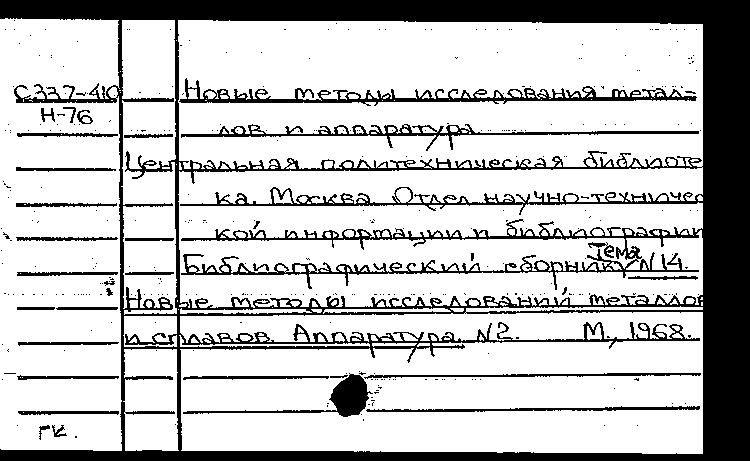 С337-410 Новые методы исследования метал-
Н-76 лов и аппаратура
Центральная политехническая библиоте
ка. Москва. Отдел научно-техничес
кой информации и библиографии
Библиографический сборник Тема N14.
Новые методы исследований металлов
и сплавов. Аппаратура. N2. М., 1968.